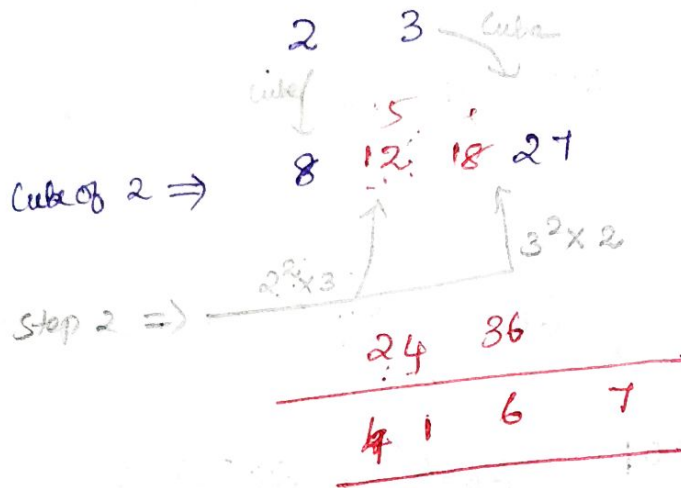 2 3 Cube
Cube
5 1
Cube of 2 ⇒ 8 12 18 27
2²×3 3²×2
Step 2 ⇒
24 36
4 1 6 7